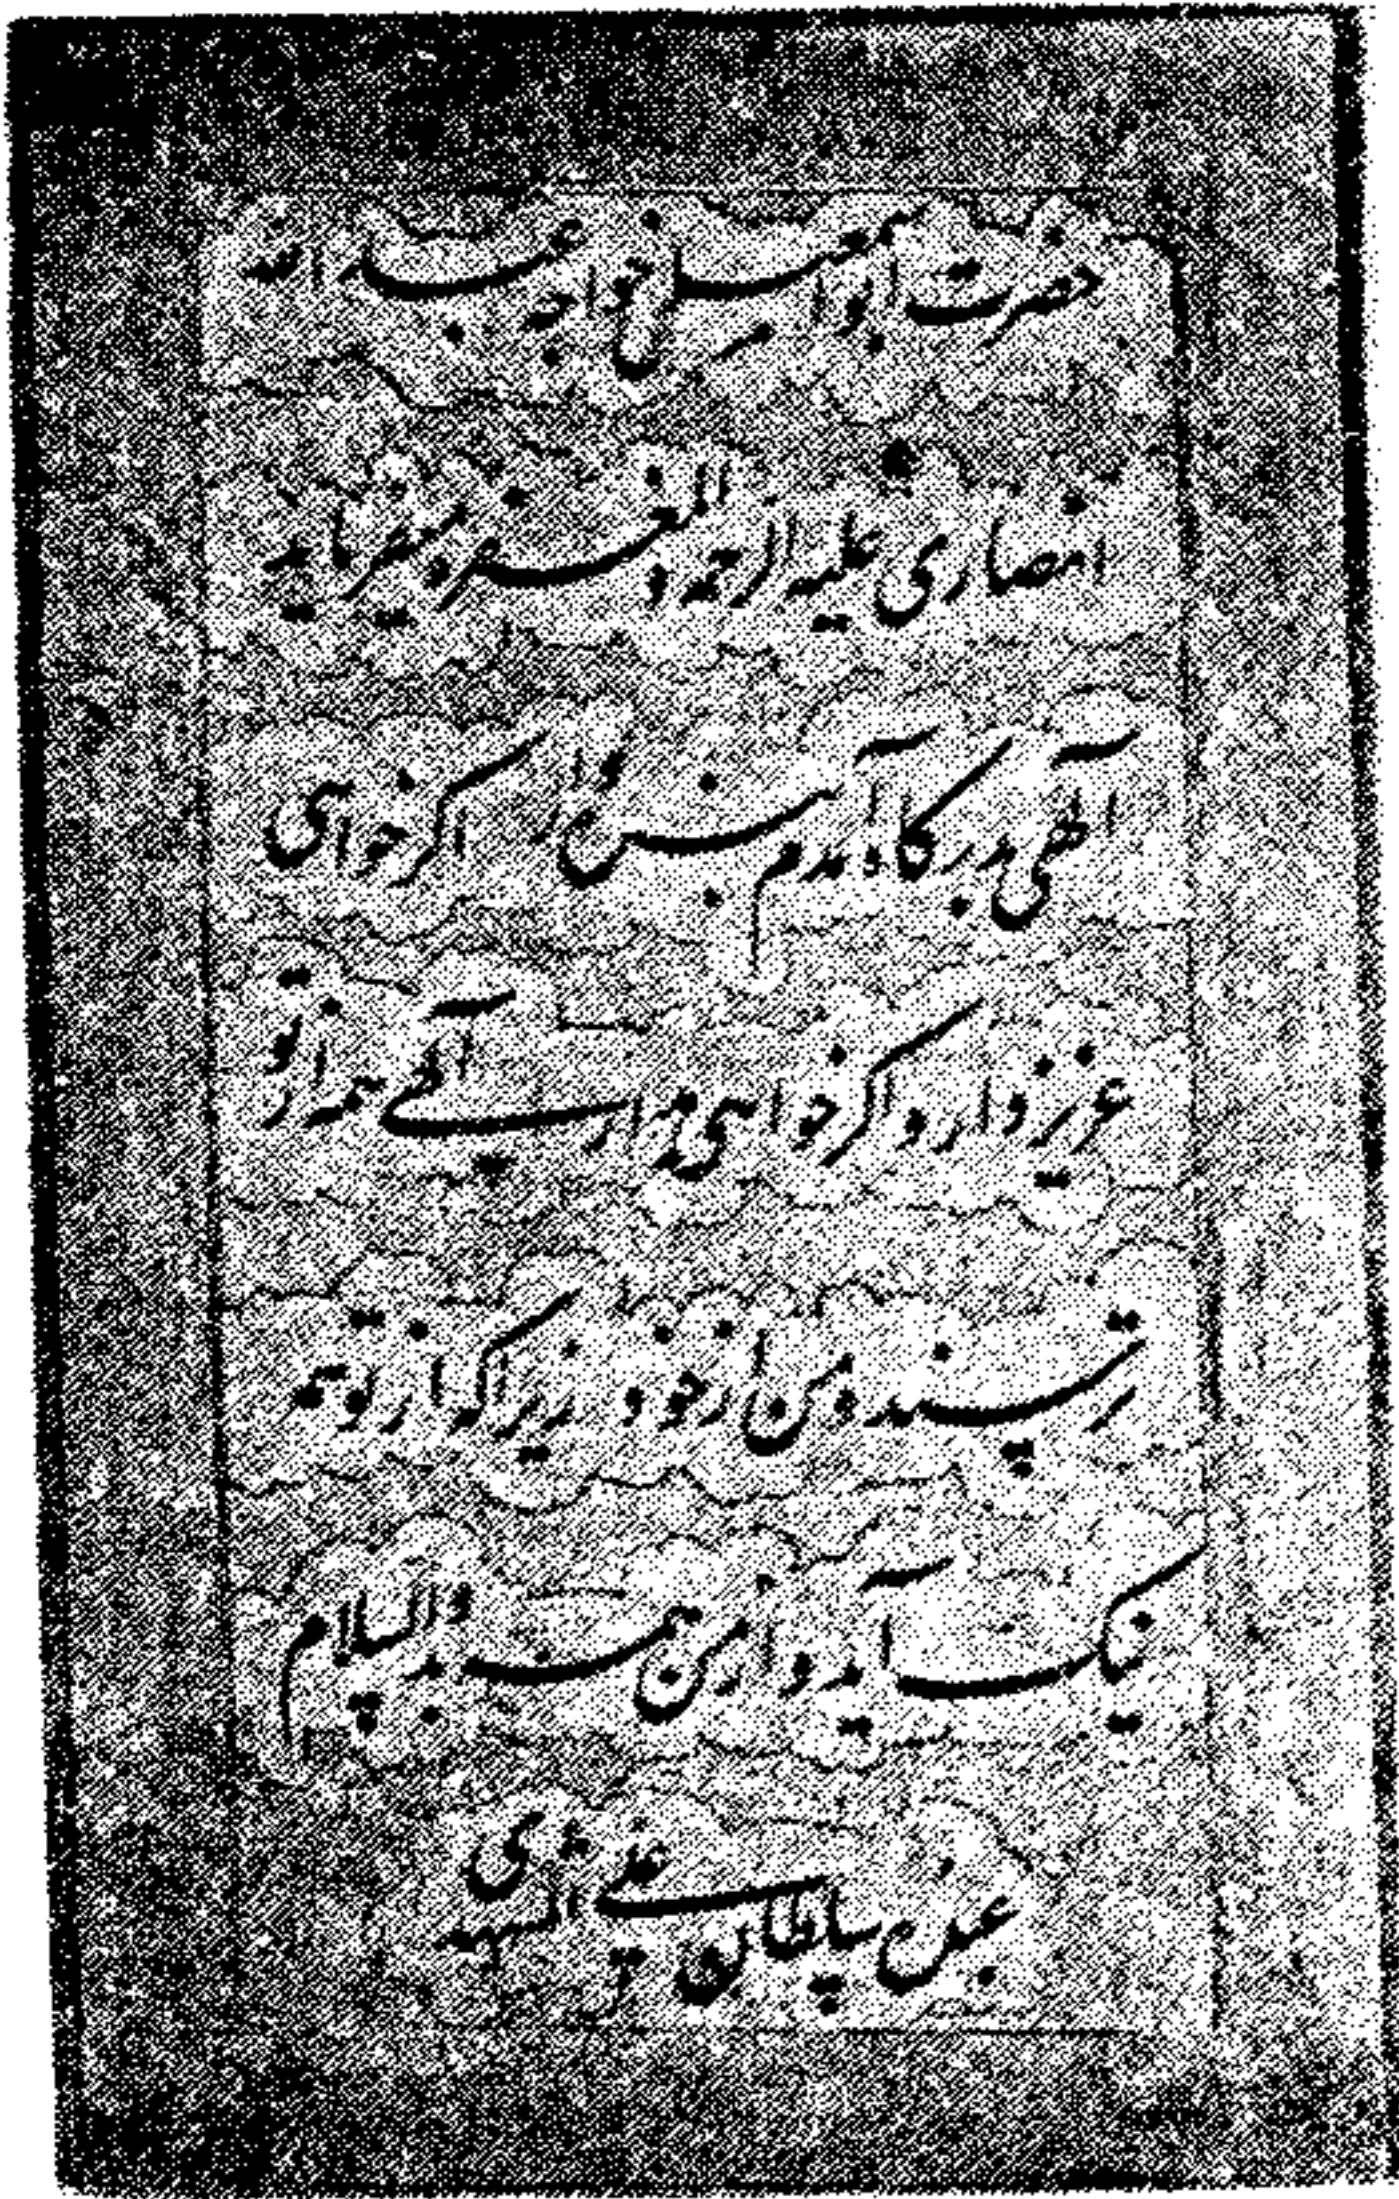 حضرت ابواسمعیل خواجه عبدالله
انصاری علیه الرحمه و المغفره میفرماید
الهی بدرگاه آمدم بنده وار اگر خواهی
عزیز دار و اگر خواهی خوار الهی همه از تو
ترسند و من از خود زیراکه از تو همه
نیک آید و از من همه بد والسلام
عبده سلطان علی المشهدی